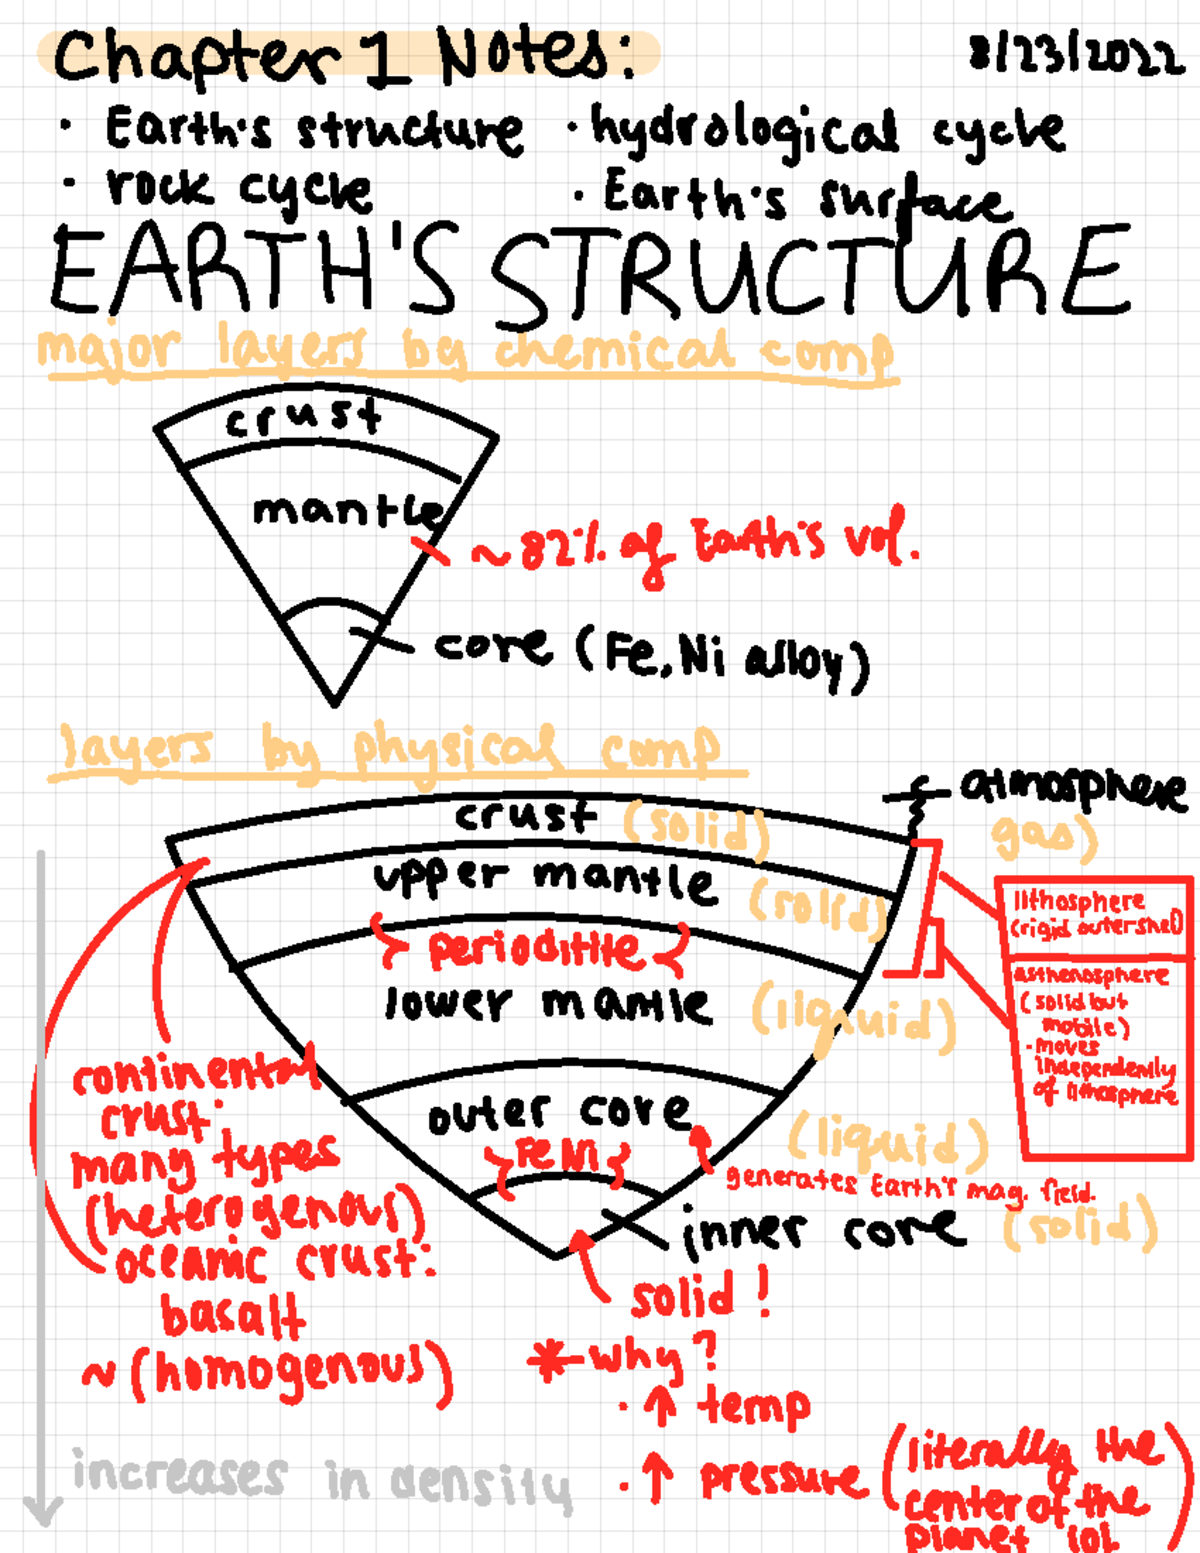 Chapter 1 Notes:
8/23/2022
· Earth's structure
· hydrological cycle
· rock cycle
· Earth's surface
EARTH'S STRUCTURE
major layers by chemical comp
crust
mantle
~82% of Earth's vol.
core (Fe, Ni alloy)
layers by physical comp
atmosphere
gas)
crust (solid)
upper mantle (solid)
perioditite
lower mantle (liquid)
outer core (liquid)
FeNi
generates Earth's mag. field.
inner core (solid)
lithosphere
(rigid outershell)
asthenosphere
(solid but
mobile)
· moves
independently
of lithosphere
continental
crust:
many types
(heterogenous)
oceanic crust:
basalt
~ (homogenous)
solid!
* why?
· ↑ temp
· ↑ pressure (literally the
center of the
planet lol.
increases in density